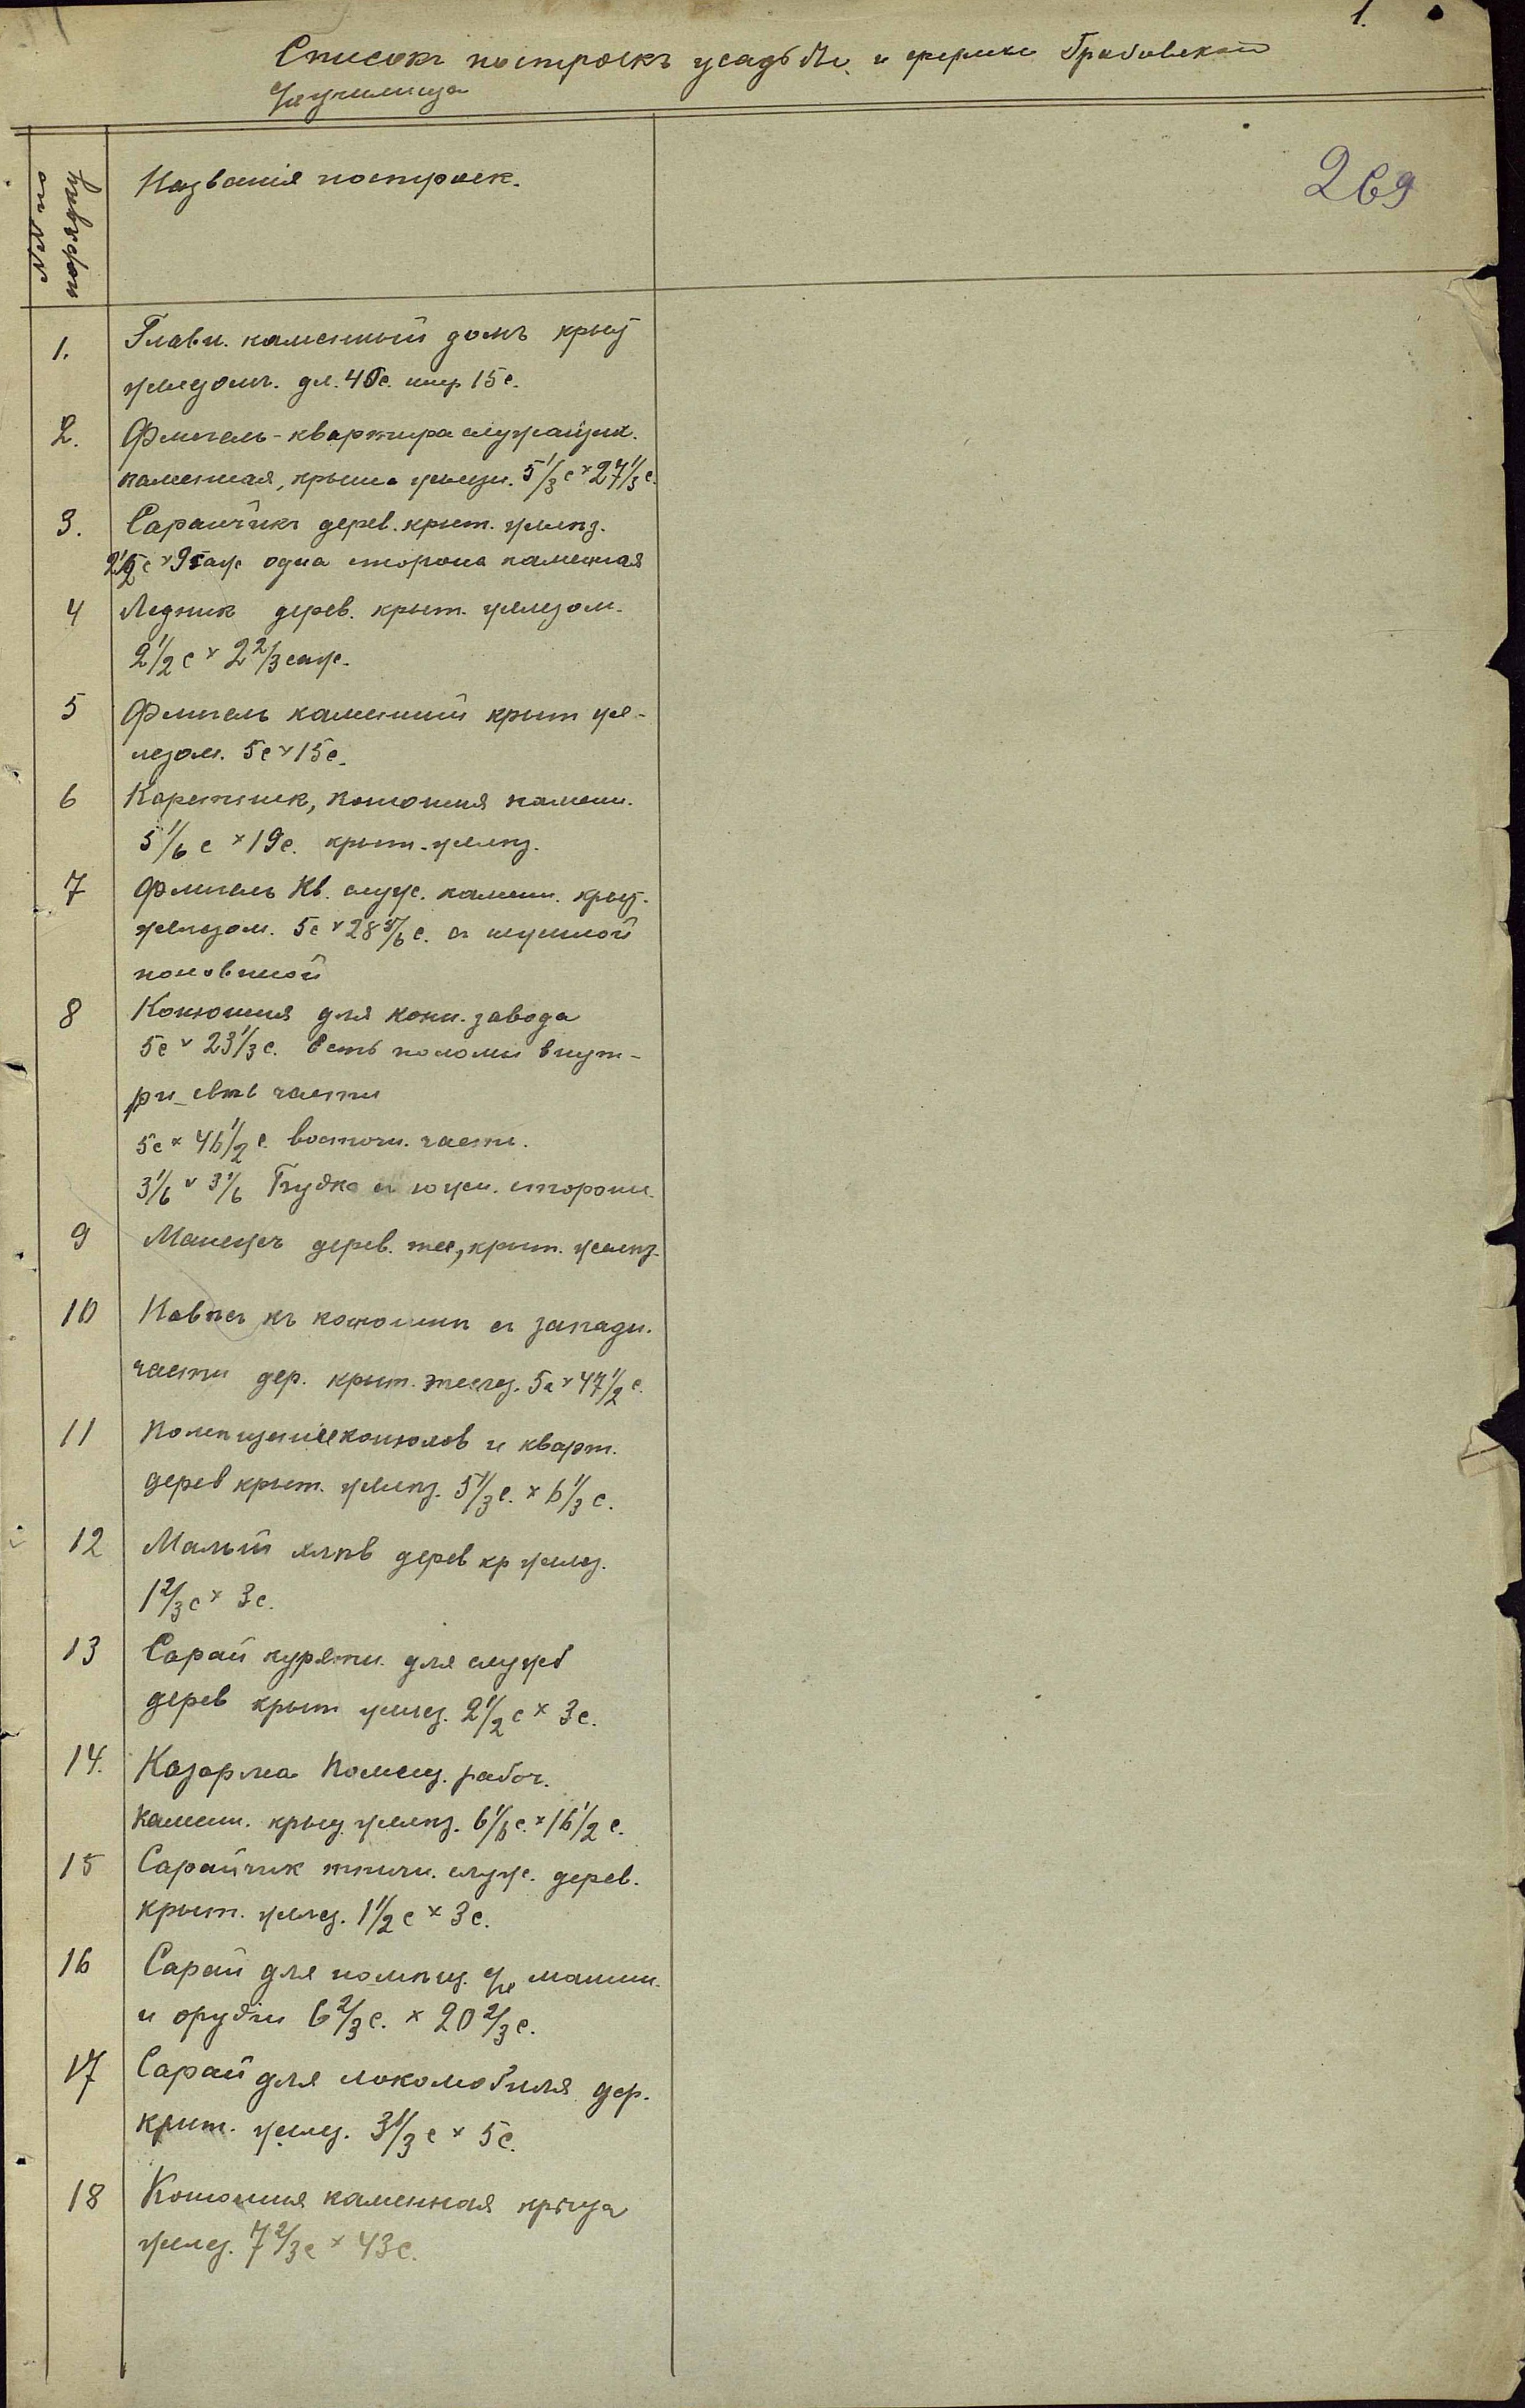 1.
Списокъ построекъ усадьбы и фермы Грабовскаго
С/х училища
269
№№ по
порядку
Названія построек.
1. Главн. каменный домъ крыт
железомъ. дл. 40с. шир 15с.
2. Флигель-квартира служащих.
каменная, крыша железн. 5 1/3 с × 27 1/3 с.
3. Сарайчикъ дерев. крыт. желѣз.
2 1/2 с × 9 саж одна сторона каменная
4 Ледник дерев. крыт. железом.
2 1/2 с × 2 2/3 саж.
5 Флигель каменный крыт же-
лезом. 5с × 15с.
6 Каретник, конюшня камен.
5 1/6 с × 19с. крыт. желѣз.
7 Флигель Кв. служ. камен. крыт.
железом. 5с × 28 5/6 с. съ
половиной
8 Конюшня для конн. завода
5с × 23 1/3 с. внут-
ри части
5с × 46 1/2 с. восточн. части.
3 1/6 × 3 1/6 Будка съ южн. стороны.
9 Манежъ дерев. крыт. желѣз.
10 Навѣсъ къ конюшнѣ съ западн.
части дер. крыт. желез. 5с × 47 1/2 с.
11 Помѣщеніе конюхов и кварт.
дерев крыт. желѣз. 5 1/3 с. × 6 1/3 с.
12 Малый хлѣв дерев кр желез.
1 2/3 с × 3с.
13 Сарай курятн. для служб
дерев крыт желез. 2 1/2 с × 3с.
14. Казарма Помещ. рабоч.
камен. крыт. желѣз. 6 1/6 с. × 16 1/2 с.
15 Сарайчик птичн. служ. дерев.
крыт. желез. 1 1/2 с × 3с.
16 Сарай для помѣщ. с/х машин.
и орудій 6 2/3 с. × 20 2/3 с.
17 Сарай для локомобиля дер.
крыт. желез. 3 1/3 с × 5с.
18 Конюшня каменная крыта
желез. 7 2/3 с × 43с.